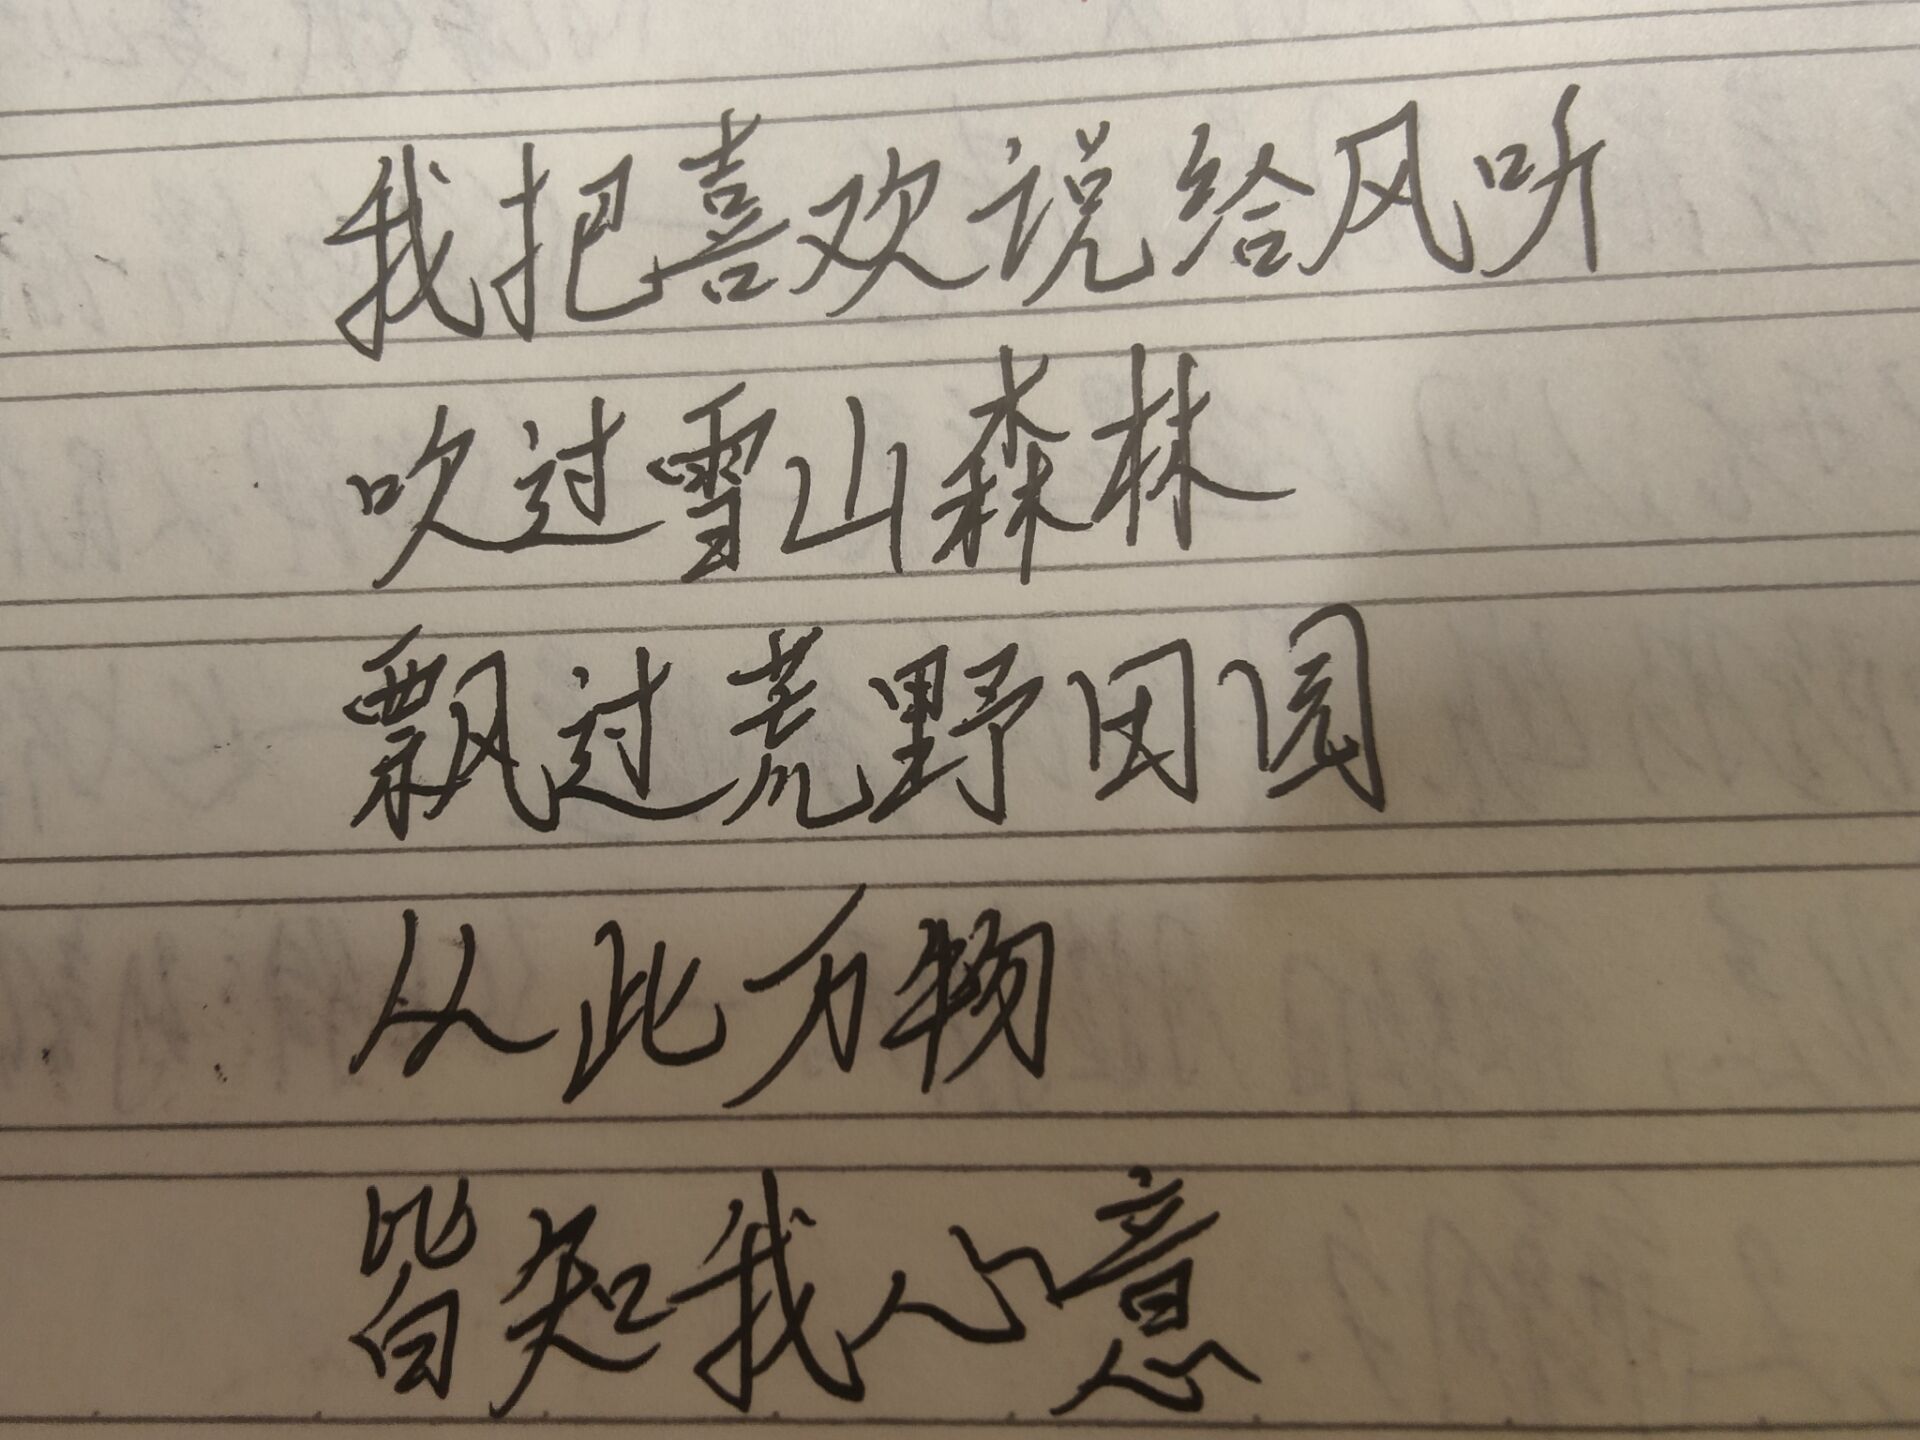 我把喜欢说给风听
吹过雪山森林
飘过荒野田园
从此万物
皆知我心意